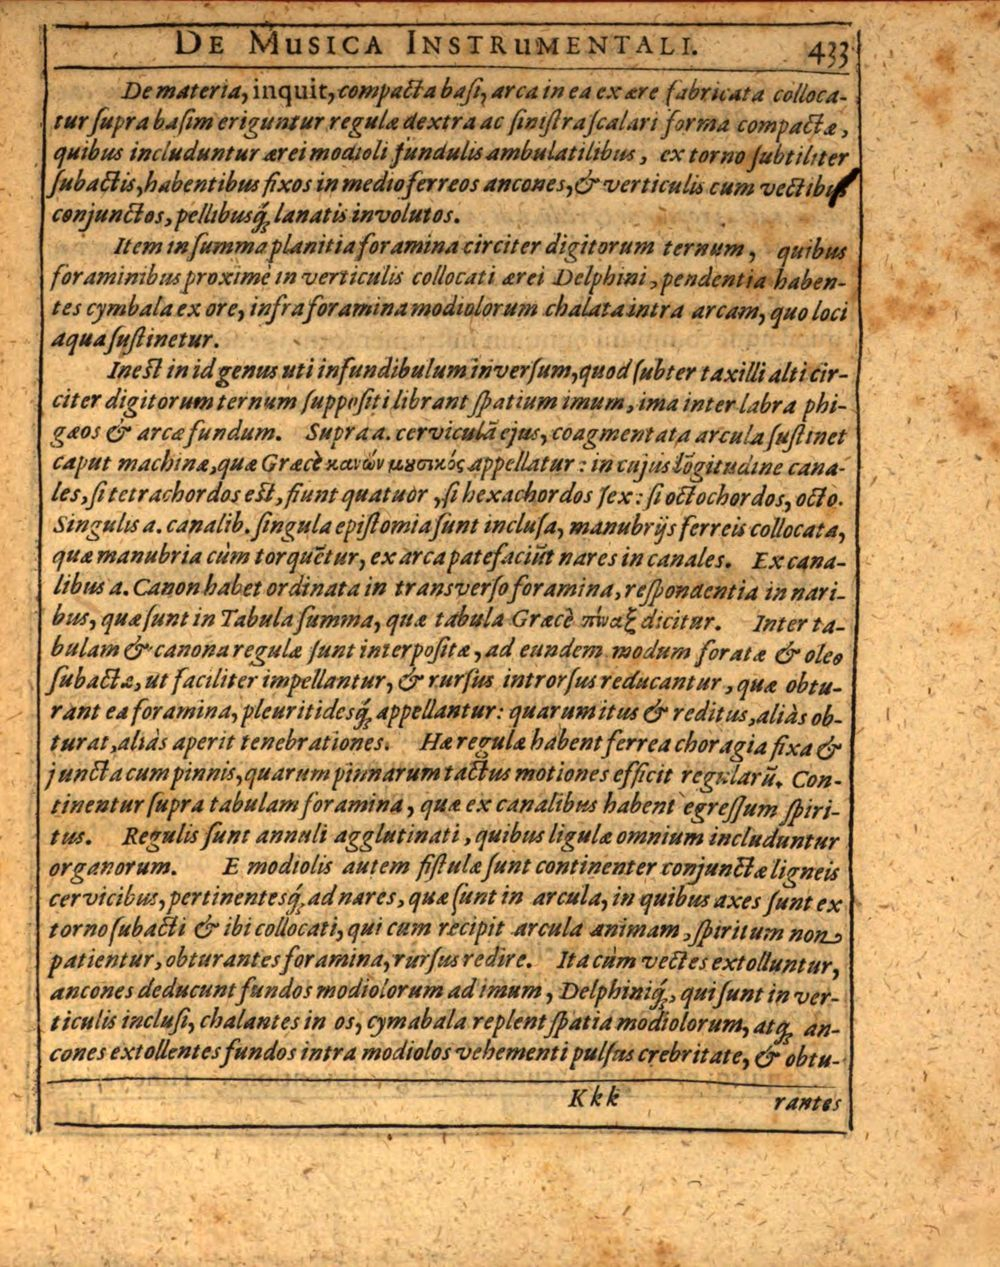 DE MUSICA INSTRUMENTALI. 433
De materia, inquit, compacta basi, arca in ea ex ære fabricata colloca-
tur supra basim eriguntur regulæ dextra ac sinistra scalari forma compactæ,
quibus includuntur ærei modioli fundulis ambulatilibus, ex torno subtiliter
subactis, habentibus fixos in medio ferreos ancones, & verticulis cum vectibus
conjunctos, pellibusq́; lanatis involutos.
Item in summa planitia foramina circiter digitorum ternum, quibus
foraminibus proximè in verticulis collocati ærei Delphini, pendentia haben-
tes cymbala ex ore, infra foramina modiolorum chalata intra arcam, quo loci
aqua sustinetur.
Inest in id genus uti infundibulum inversum, quod subter taxilli alti cir-
citer digitorum ternum suppositi librant spatium imum, ima inter labra phi-
gæos & arcæ fundum. Supra a. cerviculã ejus, coagmentata arcula sustinet
caput machinæ, quæ Græcè κανὼν μουσικός appellatur: in cujus lõgitudine cana-
les, si tetrachordos est, fiunt quatuor, si hexachordos sex: si octochordos, octo.
Singulis a. canalib. singula epistomia sunt inclusa, manubrijs ferreis collocata,
quæ manubria cùm torquẽtur, ex arca patefaciũt nares in canales. Ex cana-
libus a. Canon habet ordinata in transverso foramina, respondentia in nari-
bus, quæ sunt in Tabula summa, quæ tabula Græcè πίναξ dicitur. Inter ta-
bulam & canona regulæ sunt interpositæ, ad eundem modum foratæ & oleo
subactæ, ut faciliter impellantur, & rursus introrsus reducantur, quæ obtu-
rant ea foramina, pleuritidesq́; appellantur: quarum itus & reditus, aliàs ob-
turat, aliàs aperit tenebrationes. Hæ regulæ habent ferrea choragia fixa &
juncta cum pinnis, quarum pinnarum tactus motiones efficit regularũ. Con-
tinentur supra tabulam foramina, quæ ex canalibus habent egressum spiri-
tus. Regulis sunt annuli agglutinati, quibus ligulæ omnium includuntur
organorum. E modiolis autem fistulæ sunt continenter conjunctæ ligneis
cervicibus, pertinentesq́; ad nares, quæ sunt in arcula, in quibus axes sunt ex
torno subacti & ibi collocati, qui cum recipit arcula animam, spiritum non
patientur, obturantes foramina, rursus redire. Ita cùm vectes extolluntur,
ancones deducunt fundos modiolorum ad imum, Delphiniq́;, qui sunt in ver-
ticulis inclusi, chalantes in os, cymabala replent spatia modiolorum, atq́; an-
cones extollentes fundos intra modiolos vehementi pulsus crebritate, & obtu-
Kkk rantes